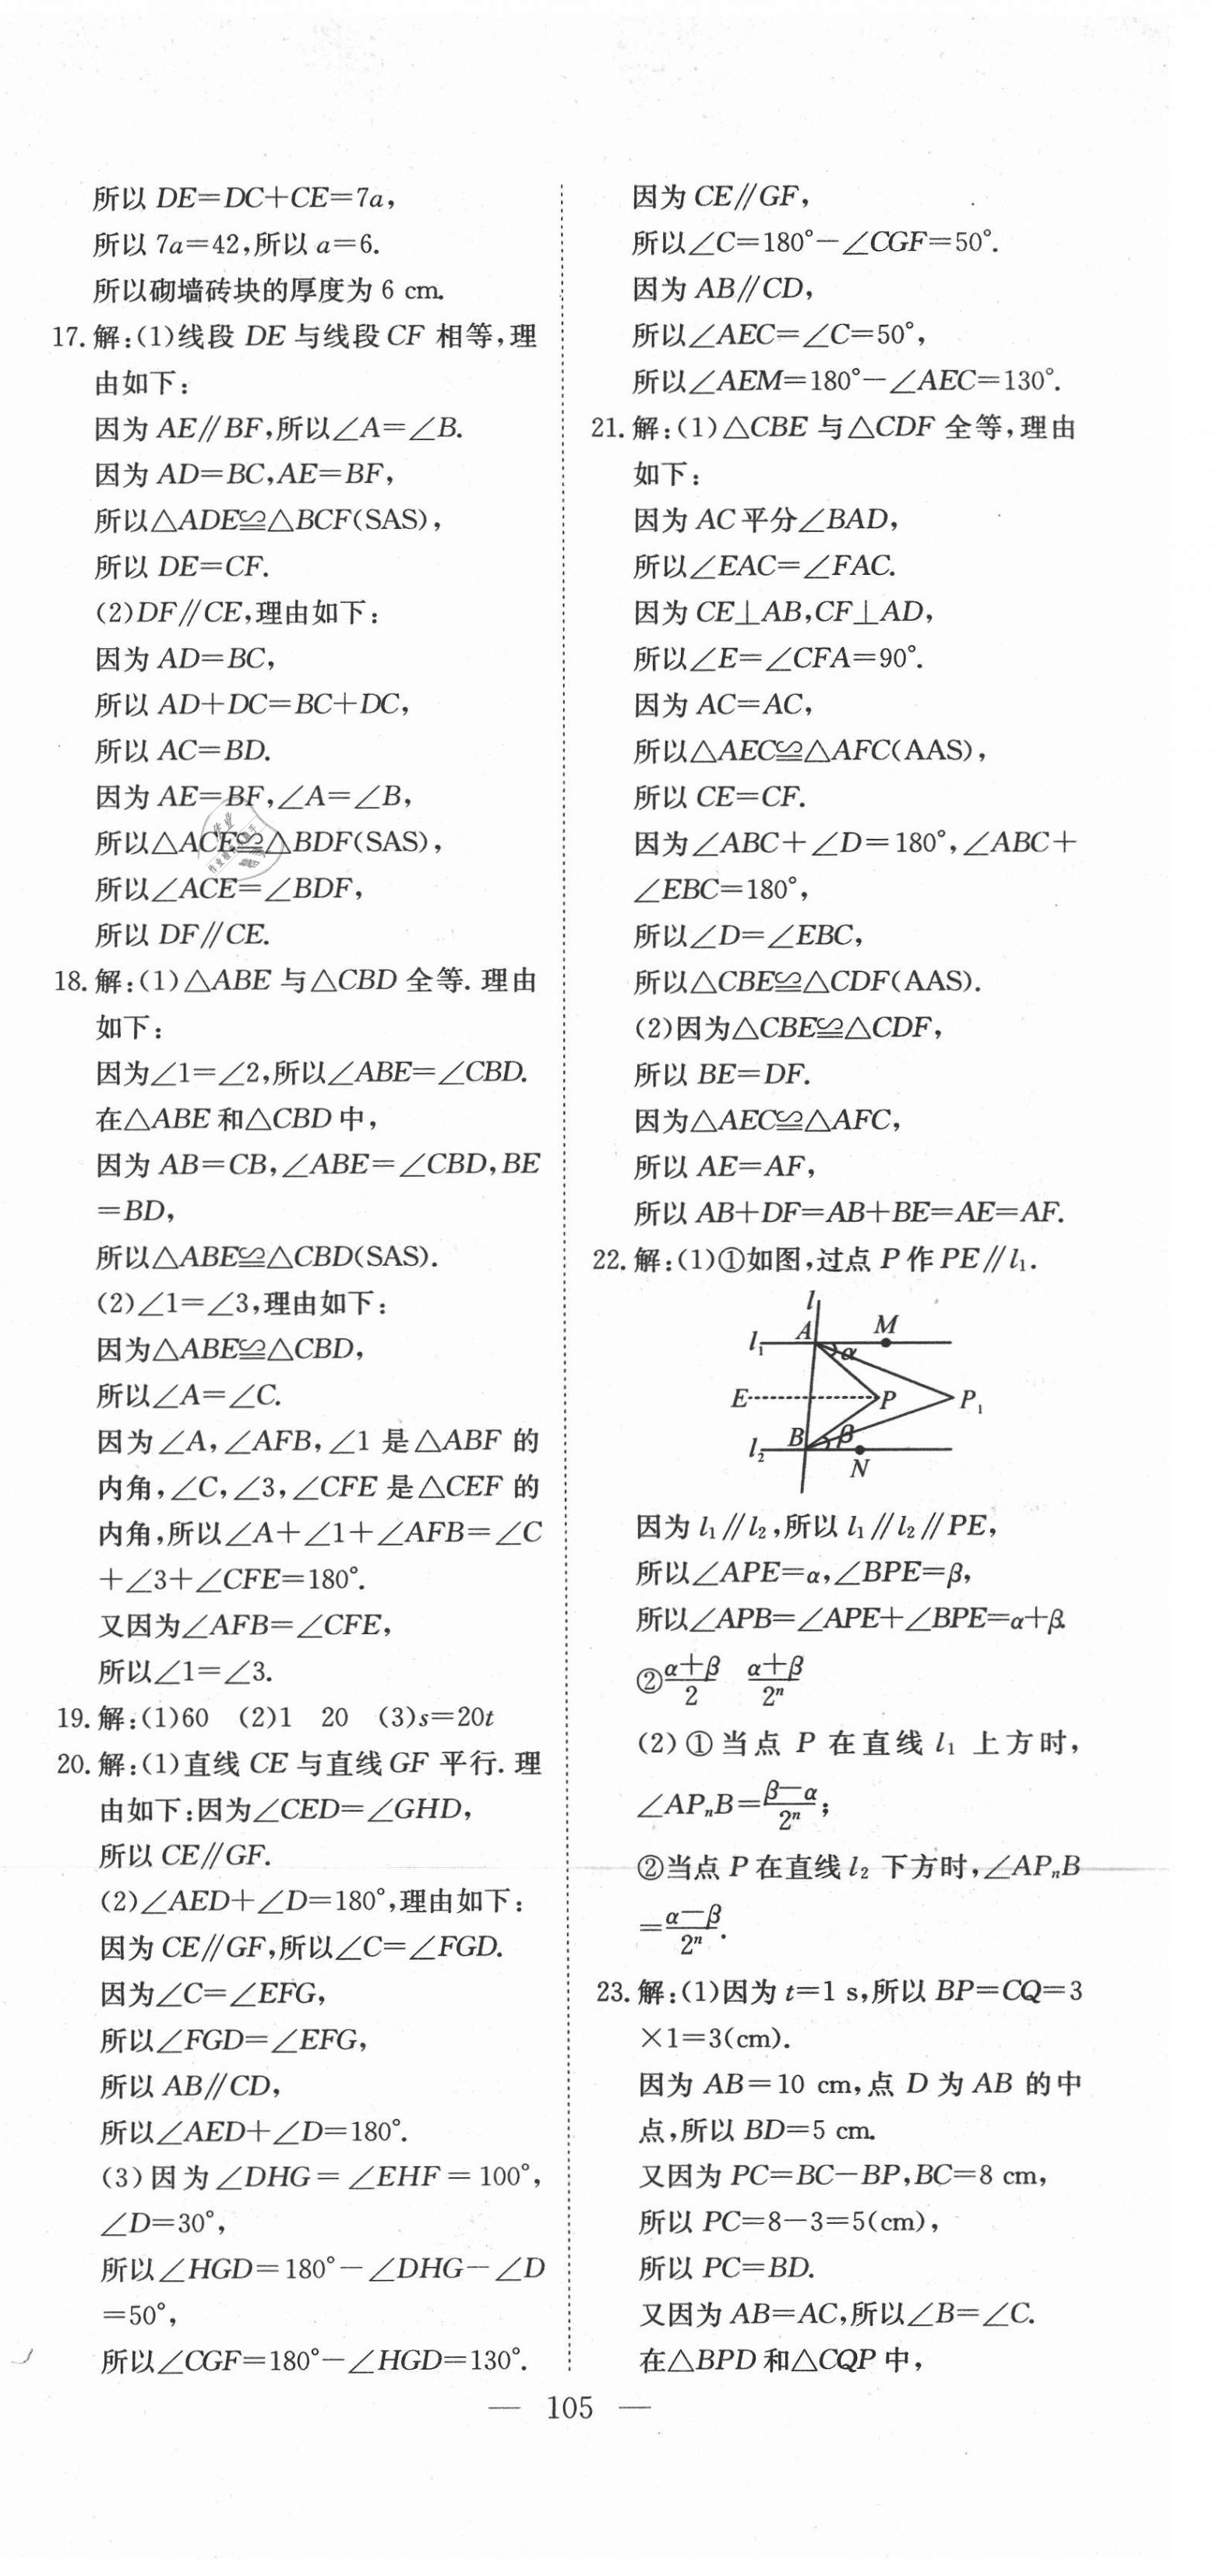 所以 DE=DC+CE=7a,
所以 7a=42,所以 a=6.
所以砌墙砖块的厚度为 6 cm.
17. 解:(1)线段 DE 与线段 CF 相等,理
由如下:
因为 AE∥BF,所以∠A=∠B.
因为 AD=BC,AE=BF,
所以△ADE≌△BCF(SAS),
所以 DE=CF.
(2)DF∥CE,理由如下:
因为 AD=BC,
所以 AD+DC=BC+DC,
所以 AC=BD.
因为 AE=BF,∠A=∠B,
所以△ACE≌△BDF(SAS),
所以∠ACE=∠BDF,
所以 DF∥CE.
18. 解:(1)△ABE 与△CBD 全等. 理由
如下:
因为∠1=∠2,所以∠ABE=∠CBD.
在△ABE 和△CBD 中,
因为 AB=CB,∠ABE=∠CBD,BE
=BD,
所以△ABE≌△CBD(SAS).
(2)∠1=∠3,理由如下:
因为△ABE≌△CBD,
所以∠A=∠C.
因为∠A,∠AFB,∠1 是△ABF 的
内角,∠C,∠3,∠CFE 是△CEF 的
内角,所以∠A+∠1+∠AFB=∠C
+∠3+∠CFE=180°.
又因为∠AFB=∠CFE,
所以∠1=∠3.
19. 解:(1)60 (2)1 20 (3)s=20t
20. 解:(1)直线 CE 与直线 GF 平行. 理
由如下:因为∠CED=∠GHD,
所以 CE∥GF.
(2)∠AED+∠D=180°,理由如下:
因为 CE∥GF,所以∠C=∠FGD.
因为∠C=∠EFG,
所以∠FGD=∠EFG,
所以 AB∥CD,
所以∠AED+∠D=180°.
(3)因为∠DHG=∠EHF=100°,
∠D=30°,
所以∠HGD=180°-∠DHG-∠D
=50°,
所以∠CGF=180°-∠HGD=130°.
因为 CE∥GF,
所以∠C=180°-∠CGF=50°.
因为 AB∥CD,
所以∠AEC=∠C=50°,
所以∠AEM=180°-∠AEC=130°.
21. 解:(1)△CBE 与△CDF 全等,理由
如下:
因为 AC 平分∠BAD,
所以∠EAC=∠FAC.
因为 CE⊥AB,CF⊥AD,
所以∠E=∠CFA=90°.
因为 AC=AC,
所以△AEC≌△AFC(AAS),
所以 CE=CF.
因为∠ABC+∠D=180°,∠ABC+
∠EBC=180°,
所以∠D=∠EBC,
所以△CBE≌△CDF(AAS).
(2)因为△CBE≌△CDF,
所以 BE=DF.
因为△AEC≌△AFC,
所以 AE=AF,
所以 AB+DF=AB+BE=AE=AF.
22. 解:(1)①如图,过点 P 作 PE∥l₁.
l
l₁ A M
α
E P P₁
l₂ B β
N
因为 l₁∥l₂,所以 l₁∥l₂∥PE,
所以∠APE=α,∠BPE=β,
所以∠APB=∠APE+∠BPE=α+β.
②(α+β)/2 (α+β)/2ⁿ
(2)①当点 P 在直线 l₁ 上方时,
∠APₙB=(β-α)/2ⁿ;
②当点 P 在直线 l₂ 下方时,∠APₙB
=(α-β)/2ⁿ.
23. 解:(1)因为 t=1 s,所以 BP=CQ=3
×1=3(cm).
因为 AB=10 cm,点 D 为 AB 的中
点,所以 BD=5 cm.
又因为 PC=BC-BP,BC=8 cm,
所以 PC=8-3=5(cm),
所以 PC=BD.
又因为 AB=AC,所以∠B=∠C.
在△BPD 和△CQP 中,
— 105 —